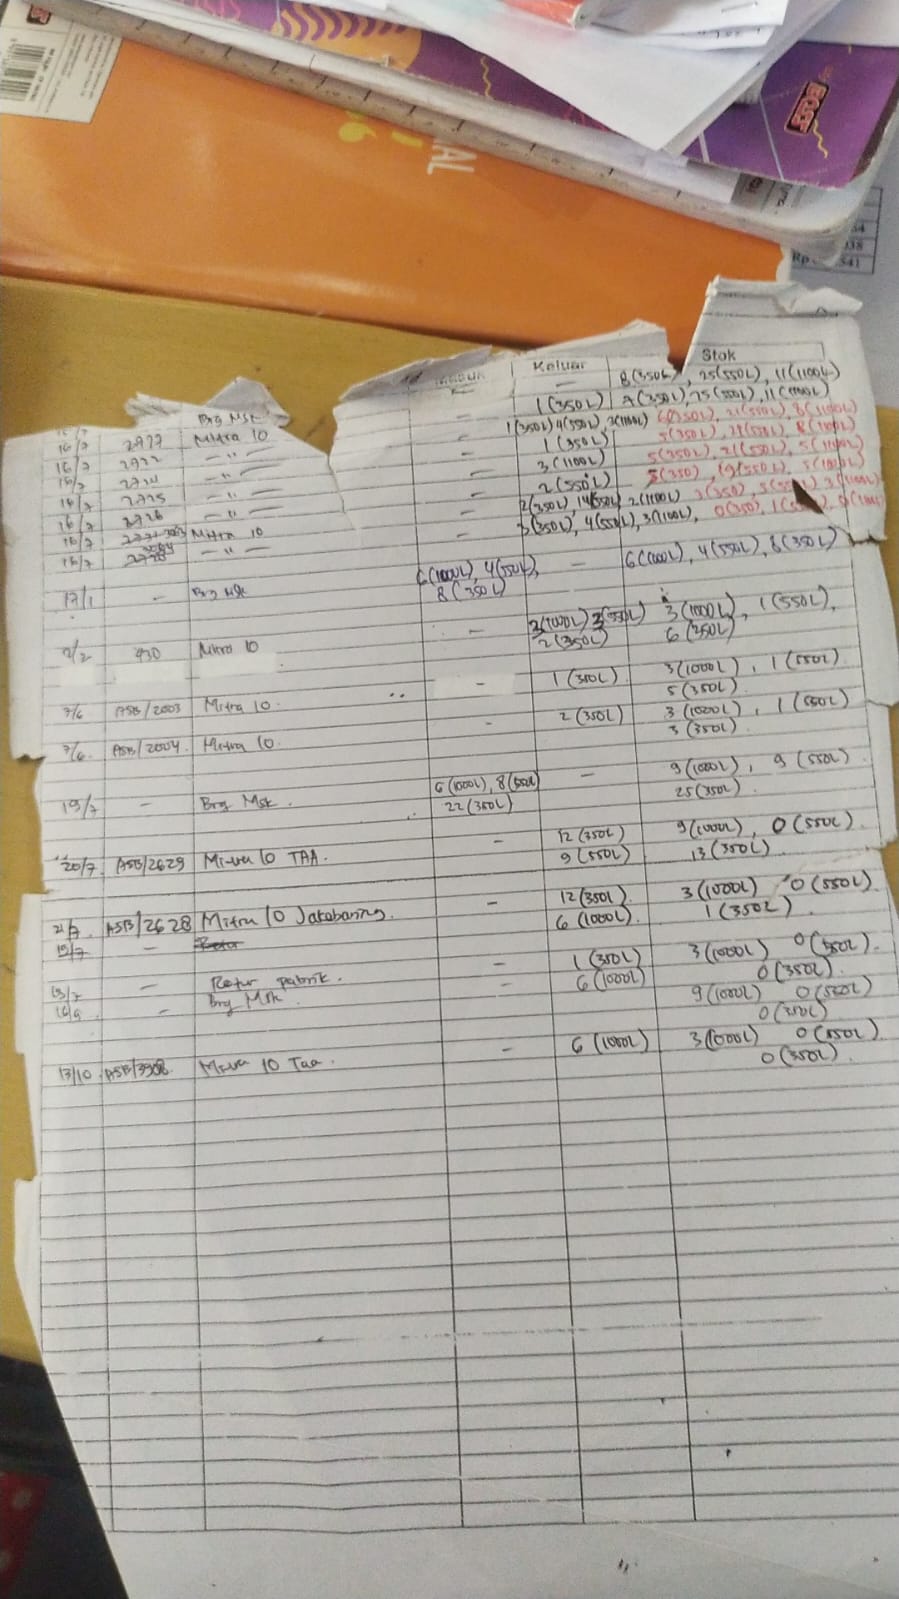 Keluar Stok
Brg Msk — 8(350L), 25(550L), 11(1100L)
16/7 2927 Mitra 10 — 1(350L) 7(350L), 25(550L), 11(1100L)
16/7 2922 —"— — 1(350L) 4(550L), 3(1100L) 6(350L), 21(550L), 8(1100L)
—"— — 1(350L) 5(350L), 21(550L), 8(1100L)
16/7 2925 —"— — 3(1100L) 5(350L), 21(550L), 5(1100L)
16/7 2926 —"— — 2(550L) 5(350), 19(550L), 5(1100L)
16/7 Mitra 10 — 2(350L), 14(550L), 2(1100L) 3(350), 5(550L) 3(1100L)
16/7 3064 —"— — 3(350L), 4(550L), 3(1100L), 0(350), 1(550L), 0(1100L)
17/1 - Brg Msk 6(1000L), 4(550L), — 6(1000L), 4(550L), 8(350L)
8(350L)
2/2 430 Mitra 10 — 3(1000L) 3(550L) 3(1000L), 1(550L),
2(350L) 6(350L)
7/6 ASB/2003 Mitra 10 - 1(350L) 3(1000L), 1(550L)
5(350L)
7/6 ASB/2004 Mitra 10 - 2(350L) 3(1000L), 1(550L)
3(350L)
19/7 - Brg Msk. 6(1000L), 8(550L) — 9(1000L), 9(550L)
22(350L) 25(350L)
20/7 ASB/2629 Mitra 10 TAA. - 12(350L) 9(1000L), 0(550L)
9(550L) 13(350L)
21/7 ASB/2628 Mitra 10 Jakabaring. - 12(350L) 3(1000L) 0(550L)
6(1000L) 1(350L)
15/7 -
13/7 - Retur pabrik. - 1(350L) 3(1000L) 0(550L).
16/9 - Brg Msk. - 6(1000L) 0(350L).
9(1000L) 0(550L)
0(350L)
13/10 ASB/3908. Mitra 10 Taa. - 6(1000L) 3(1000L) 0(550L)
0(350L)